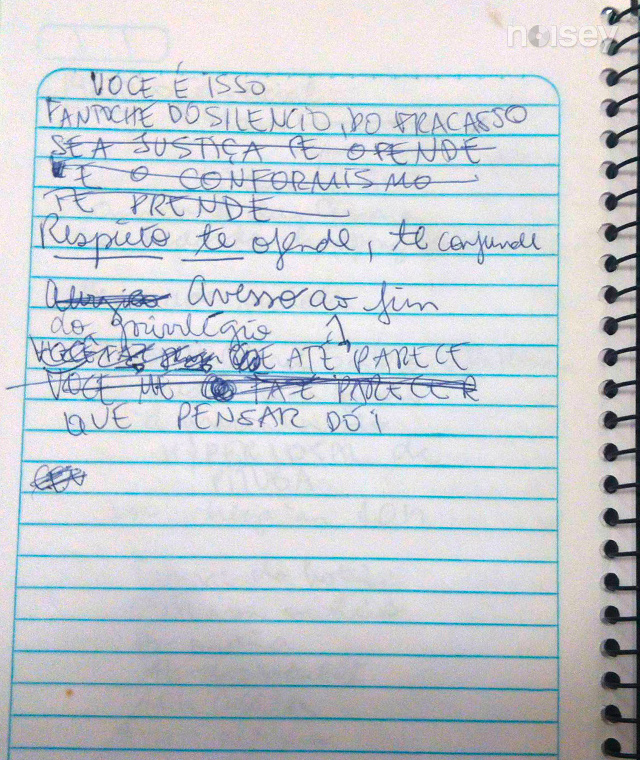 noisey
VOCE É ISSO
FANTOCHE DO SILENCIO, DO FRACASSO
SE A JUSTIÇA TE OFENDE
E O CONFORMISMO
TE PRENDE
Respeito te ofende, te confunde
Avesso ao fim
do privilégio
VOCÊ E ATÉ PARECE
VOCE ME FAZ PARECER
QUE PENSAR DÓI